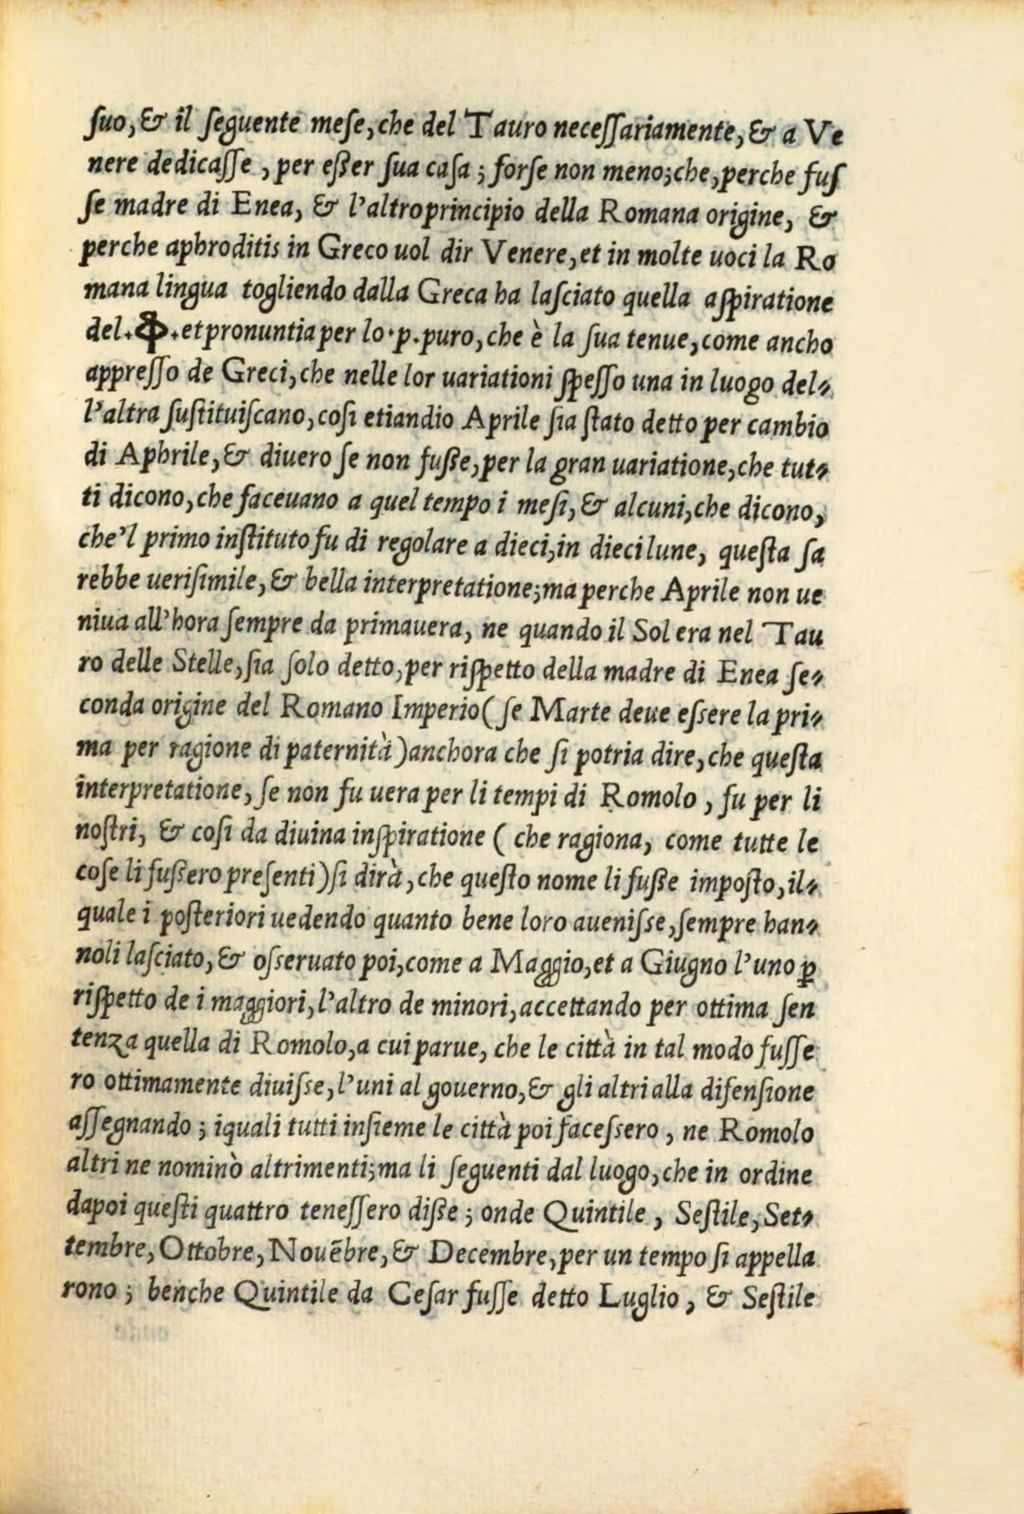 ſuo, & il ſeguente meſe, che del Tauro neceſſariamente, & a Ve
nere dedicaſſe , per eſſer ſua caſa ; forſe non meno; che, perche fuſ
ſe madre di Enea, & l'altro principio della Romana origine, &
perche aphroditis in Greco uol dir Venere, et in molte uoci la Ro
mana lingua togliendo dalla Greca ha laſciato quella aſpiratione
del. Φ. et pronuntia per lo. p. puro, che è la ſua tenue, come ancho
appreſſo de Greci, che nelle lor uariationi ſpeſſo una in luogo del-
l'altra ſuſtituiſcano, coſi etiandio Aprile ſia ſtato detto per cambio
di Aphrile, & diuero ſe non fuſſe, per la gran uariatione, che tut-
ti dicono, che faceuano a quel tempo i meſi, & alcuni, che dicono,
che'l primo inſtituto fu di regolare a dieci, in dieci lune, queſta ſa
rebbe ueriſimile, & bella interpretatione; ma perche Aprile non ue
niua all'hora ſempre da primauera, ne quando il Sol era nel Tau
ro delle Stelle, ſia ſolo detto, per riſpetto della madre di Enea ſe-
conda origine del Romano Imperio ( ſe Marte deue eſſere la pri-
ma per ragione di paternità ) anchora che ſi potria dire, che queſta
interpretatione, ſe non fu uera per li tempi di Romolo , fu per li
noſtri, & coſi da diuina inſpiratione ( che ragiona, come tutte le
coſe li fuſſero preſenti ) ſi dirà, che queſto nome li fuſſe impoſto, il-
quale i poſteriori uedendo quanto bene loro aueniſſe, ſempre han-
noli laſciato, & oſſeruato poi, come a Maggio, et a Giugno l'uno ꝑ
riſpetto de i maggiori, l'altro de minori, accettando per ottima ſen
tenza quella di Romolo, a cui parue, che le città in tal modo fuſſe
ro ottimamente diuiſſe, l'uni al gouerno, & gli altri alla difenſione
aſſegnando ; iquali tutti inſieme le città poi faceſſero , ne Romolo
altri ne nominò altrimenti; ma li ſeguenti dal luogo, che in ordine
dapoi queſti quattro teneſſero diſſe ; onde Quintile , Seſtile, Set-
tembre, Ottobre, Nouẽbre, & Decembre, per un tempo ſi appella
rono ; benche Quintile da Ceſar fuſſe detto Luglio , & Seſtile